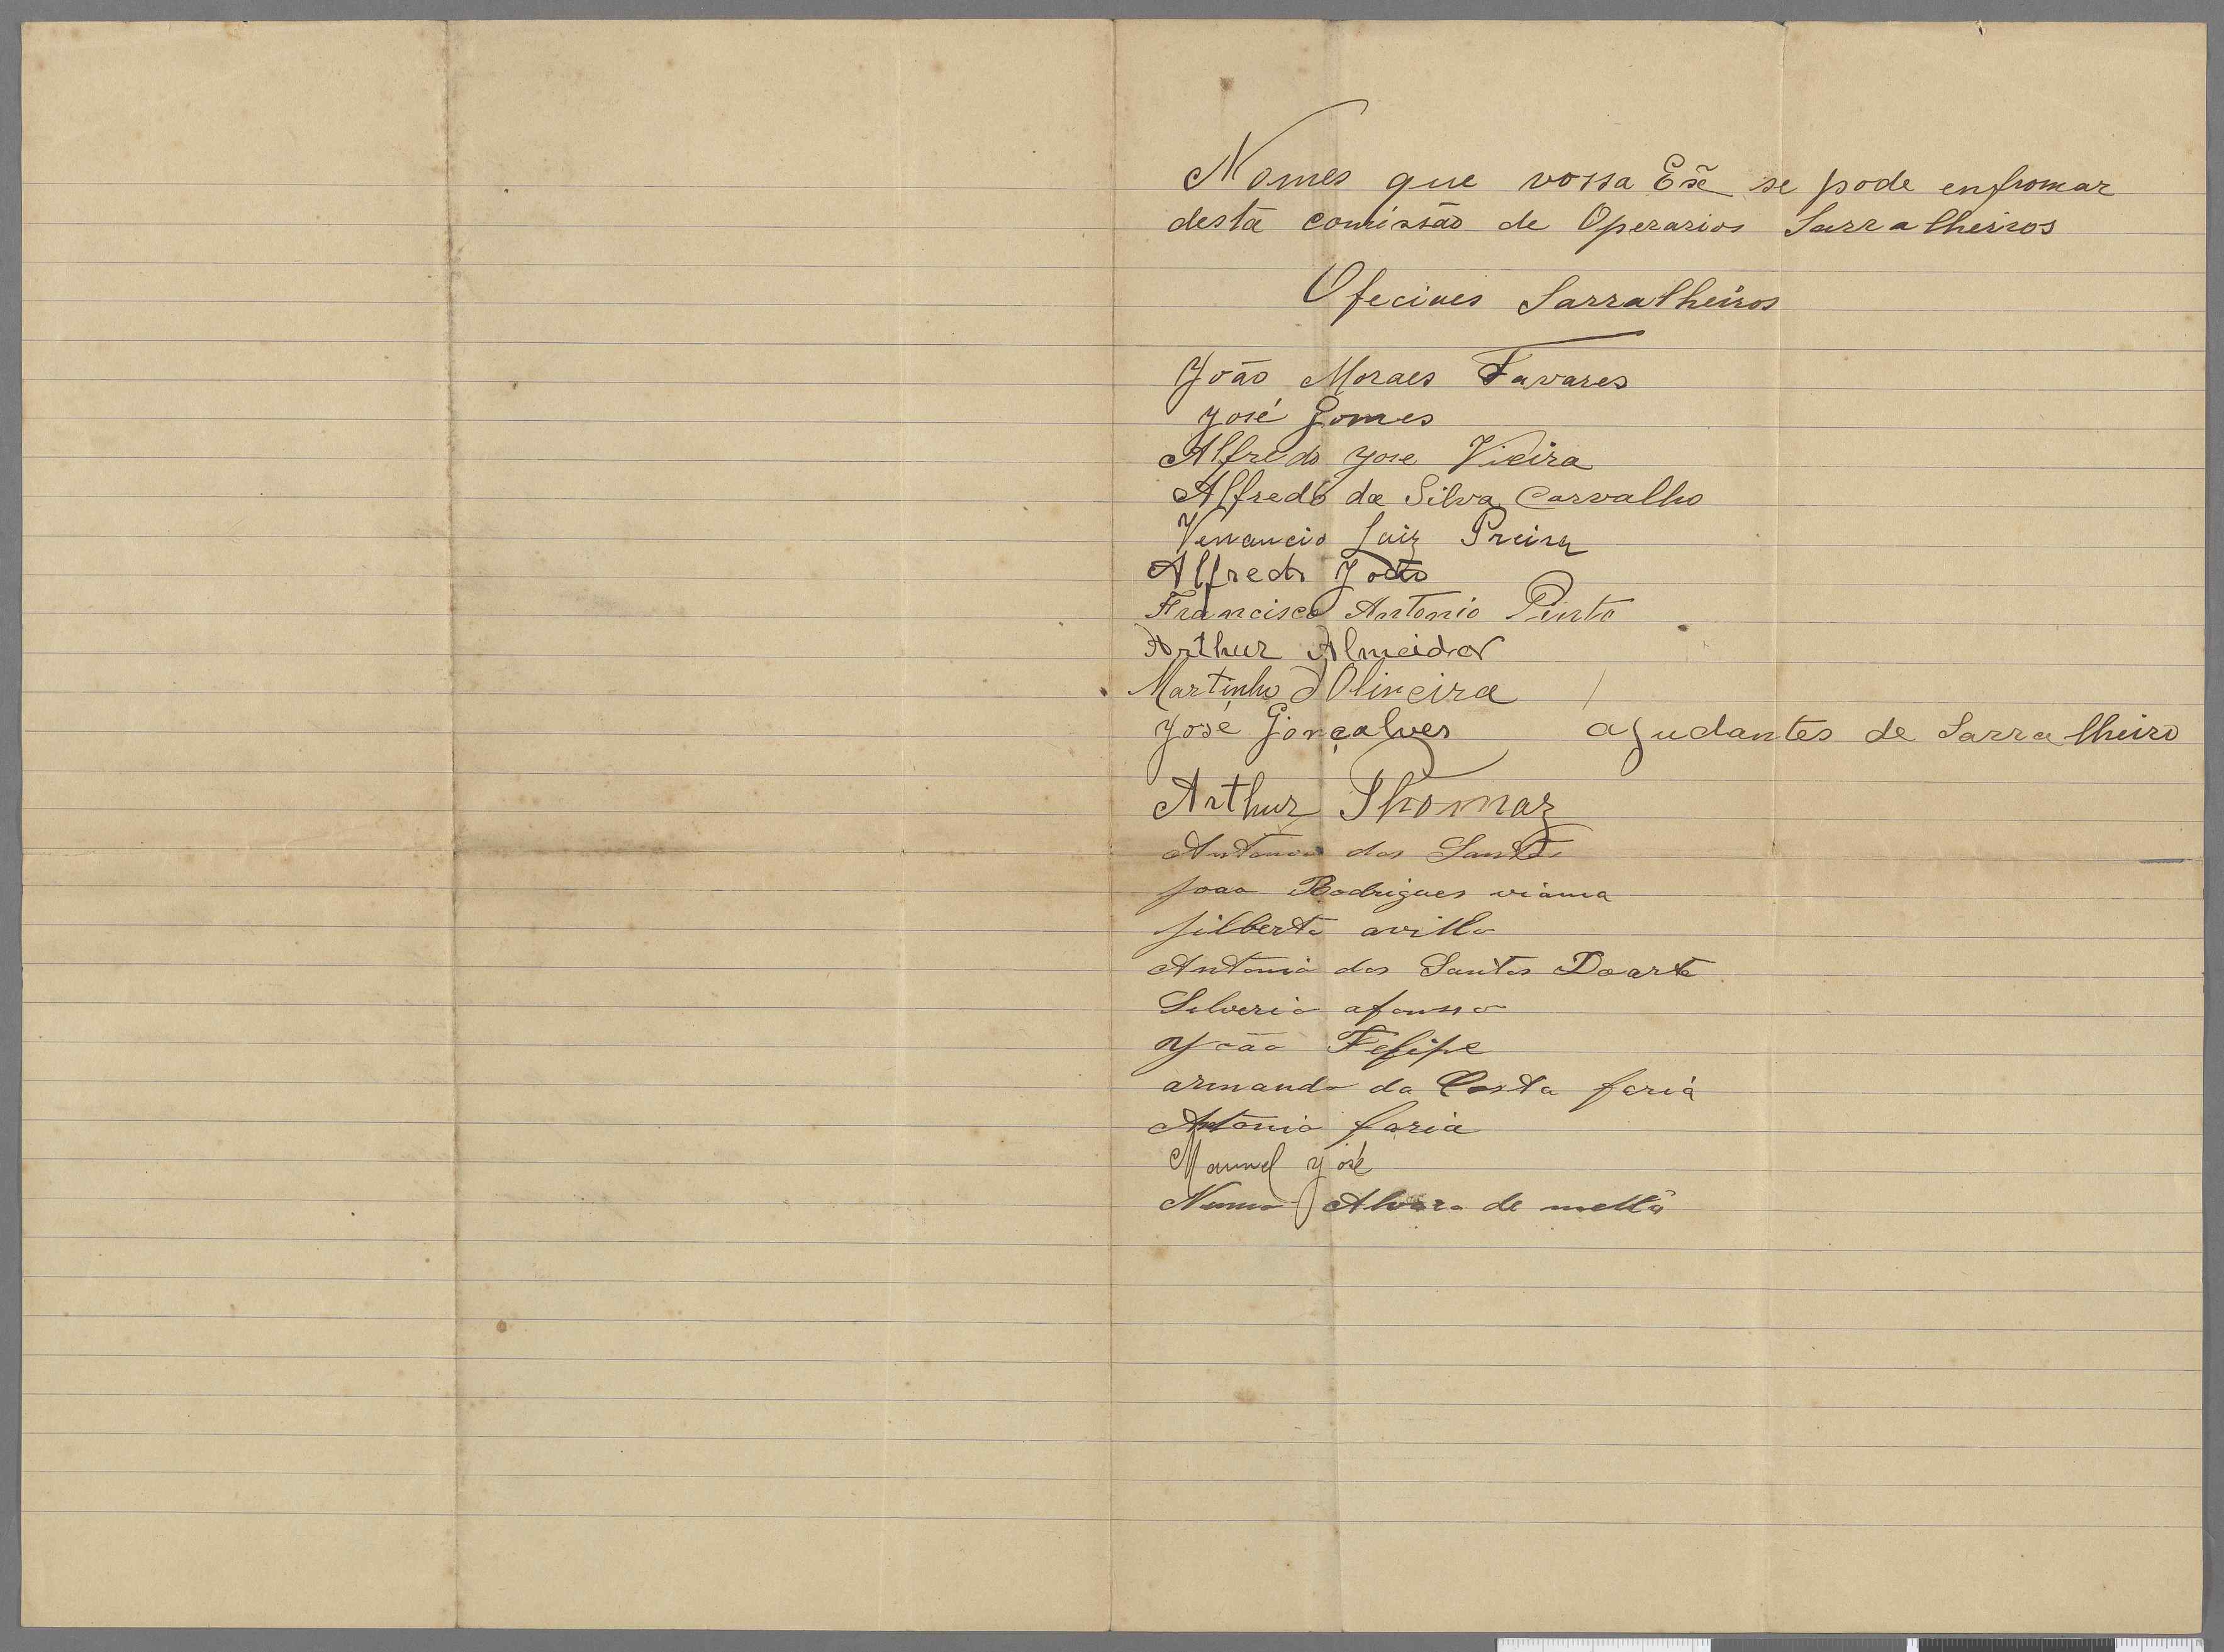 Nomes que vossa Exª se pode enfromar
desta comissão de Operarios Sarralheiros
Ofeciaes Sarralheiros
João Moraes Tavares
José Gomes
Alfredo Jose Vieira
Alfredo da Silva Carvalho
Venancio Luiz Preira
Alfredo João
Francisco Antonio Pinto
Arthur Almeida
Martinho d'Oliveira
José Gonçalves ajudantes de Sarralheiro
Arthur Thomaz
Antonio dos Santos
joao Rodrigues viana
jilberto avilla
Antonio dos Santos Doarte
Silverio afonsso
João Felipe
armando da Costa faria
Antonio faria
Manuel José
Nunno Alvaro de mello